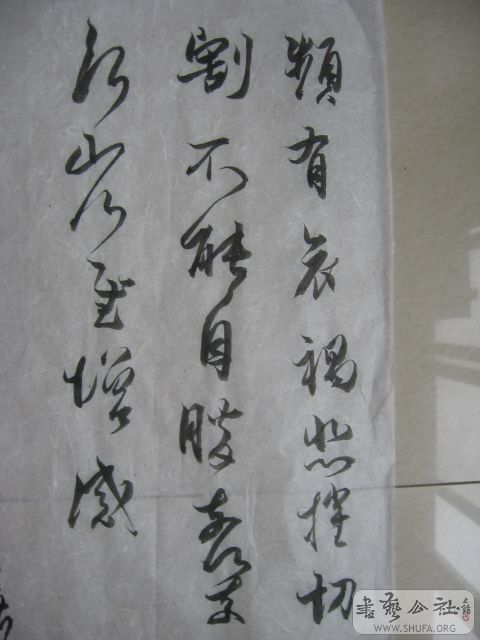 頻有哀禍悲摧切
割不能自勝奈何
增感
書藝公社
WWW.SHUFA.ORG